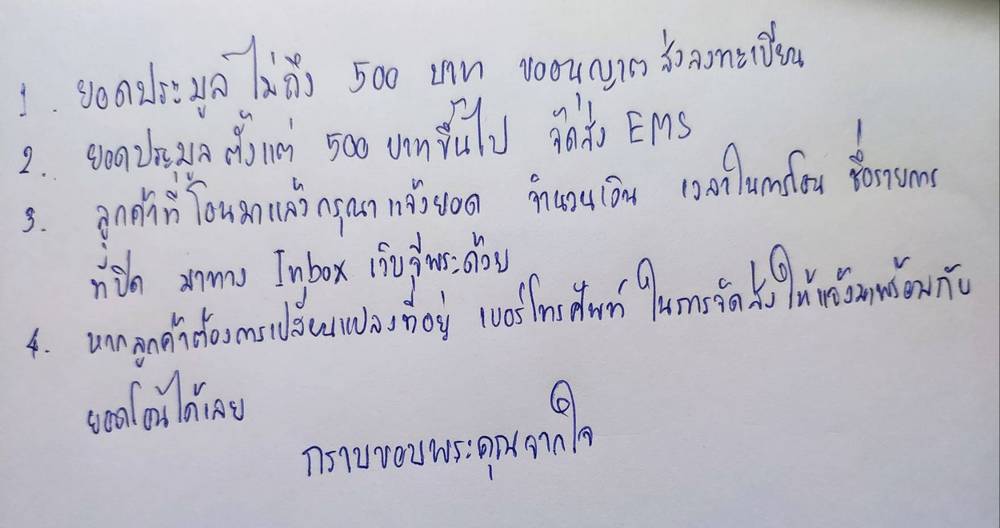 1. ยอดประมูล ไม่ถึง 500 บาท ขออนุญาต ส่งลงทะเบียน
2. ยอดประมูล ตั้งแต่ 500 บาทขึ้นไป จัดส่ง EMS
3. ลูกค้าที่โอนมาแล้วกรุณาแจ้งยอด จำนวนเงิน เวลาในการโอน ชื่อรายการ
ที่ปิด มาทาง Inbox เว็บจีพระด้วย
4. หากลูกค้าต้องการเปลี่ยนแปลงที่อยู่ เบอร์โทรศัพท์ ในการจัดส่งให้แจ้งมาพร้อมกับ
ยอดโอนได้เลย
กราบขอบพระคุณจากใจ